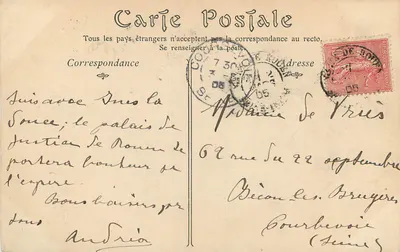 Carte Postale
Tous les pays étrangers n'acceptent pas la correspondance au recto,
Se renseigner à la poste.
Correspondance
Adresse
COURBEVOIE
7 30
05
SEINE
05
05
suis avec
Douce; le palais de
Justice de Rouen me
portera bonheur je
l'espère.
Bons baisers pr
tous
Andréa
Madame de Vriès
62 rue du 22 septembre
Bécon-les-Bruyères
Courbevoie
(Seine)